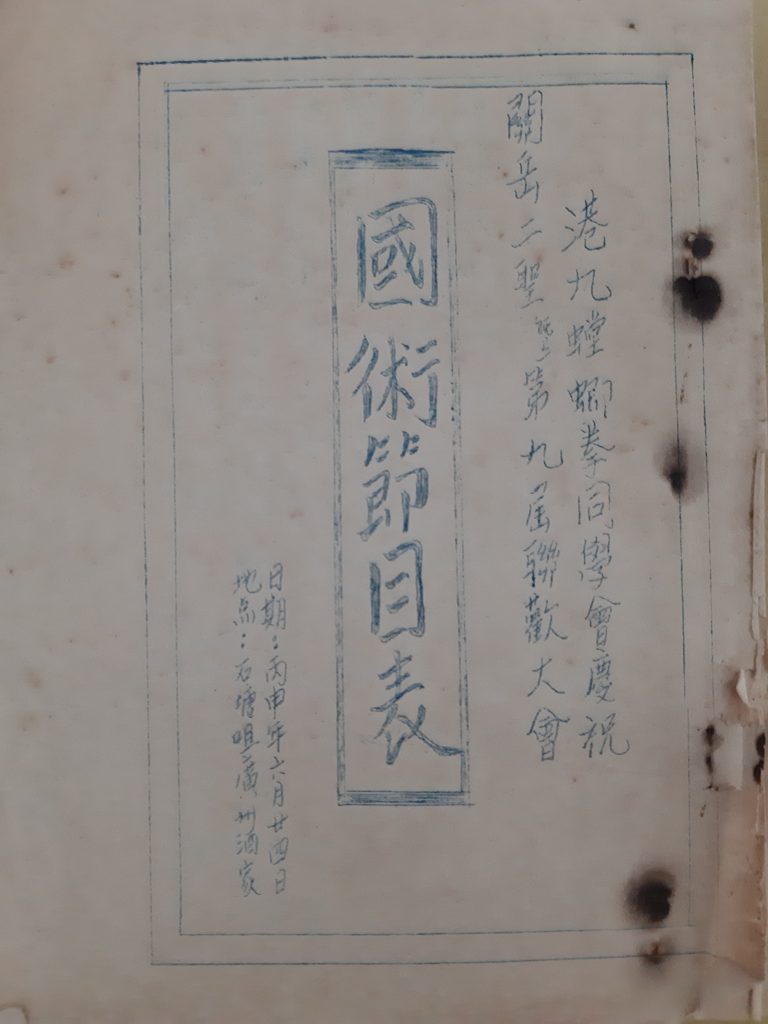 港九螳螂拳同學會慶祝
關岳二聖誕第九屆聯歡大會
國術節目表
日期：丙申年六月廿四日
地点：石塘咀廣州酒家